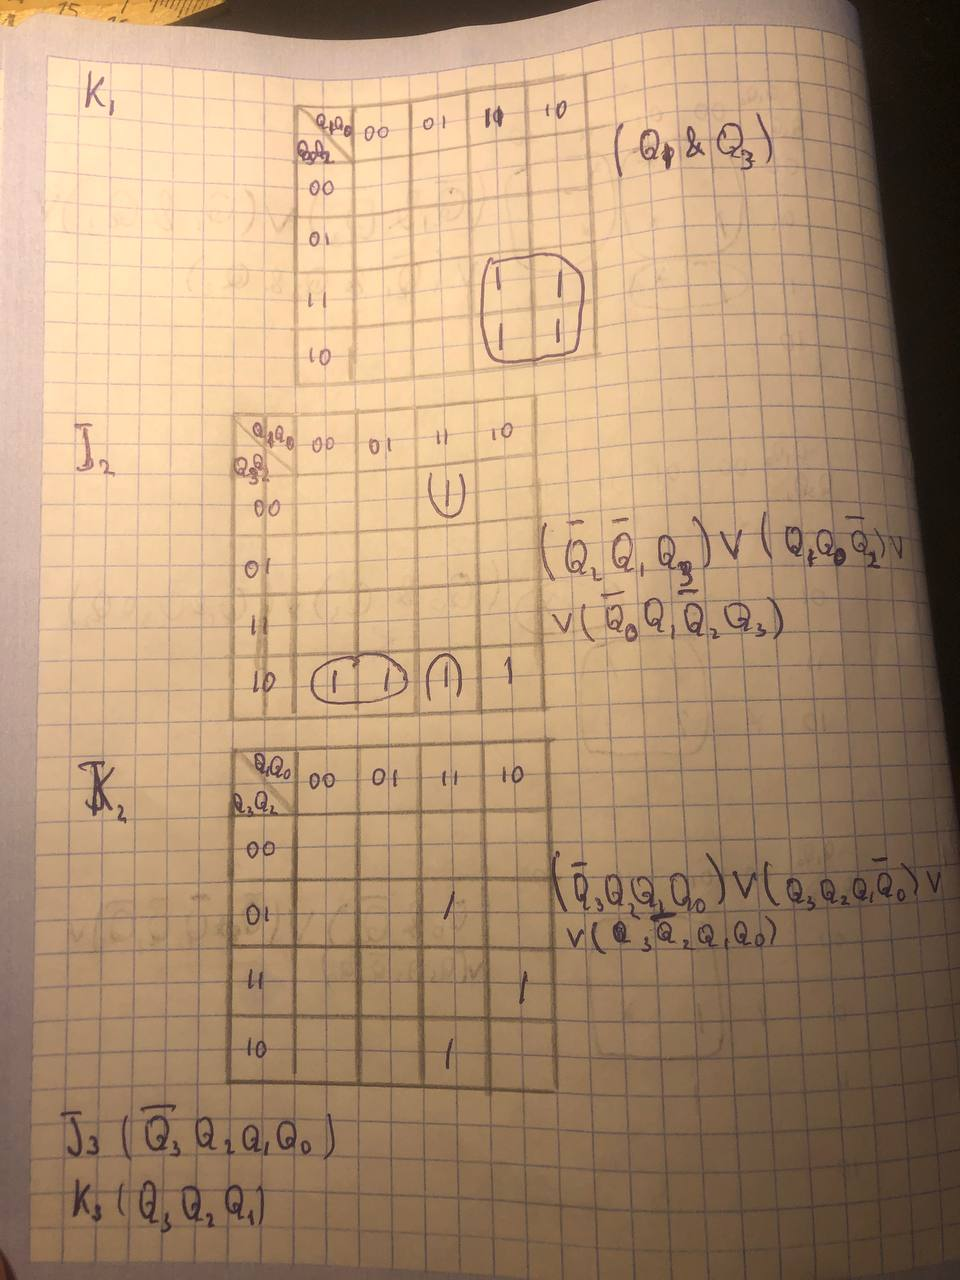 15
K₁
Q₁Q₀ 00 01 11 10
Q₃Q₂
00
01
11 1 1
10 1 1
(Q₁ & Q₃)
J₂
Q₁Q₀ 00 01 11 10
Q₃Q₂
00 1
01
11
10 1 1 1 1
(Q̄₂ Q̄₁ Q₃) ∨ (Q₁Q₀Q̄₂) ∨
∨ (Q̄₀ Q₁ Q̄₂ Q₃)
K₂
Q₁Q₀ 00 01 11 10
Q₃Q₂
00
01 1
11 1
10 1
(Q̄₃Q₂Q₁Q₀) ∨ (Q₃Q₂Q₁Q̄₀) ∨
∨ (Q₃Q̄₂Q₁Q₀)
J₃ (Q̄₃ Q₂ Q₁ Q₀)
K₃ (Q₃ Q₂ Q₁)